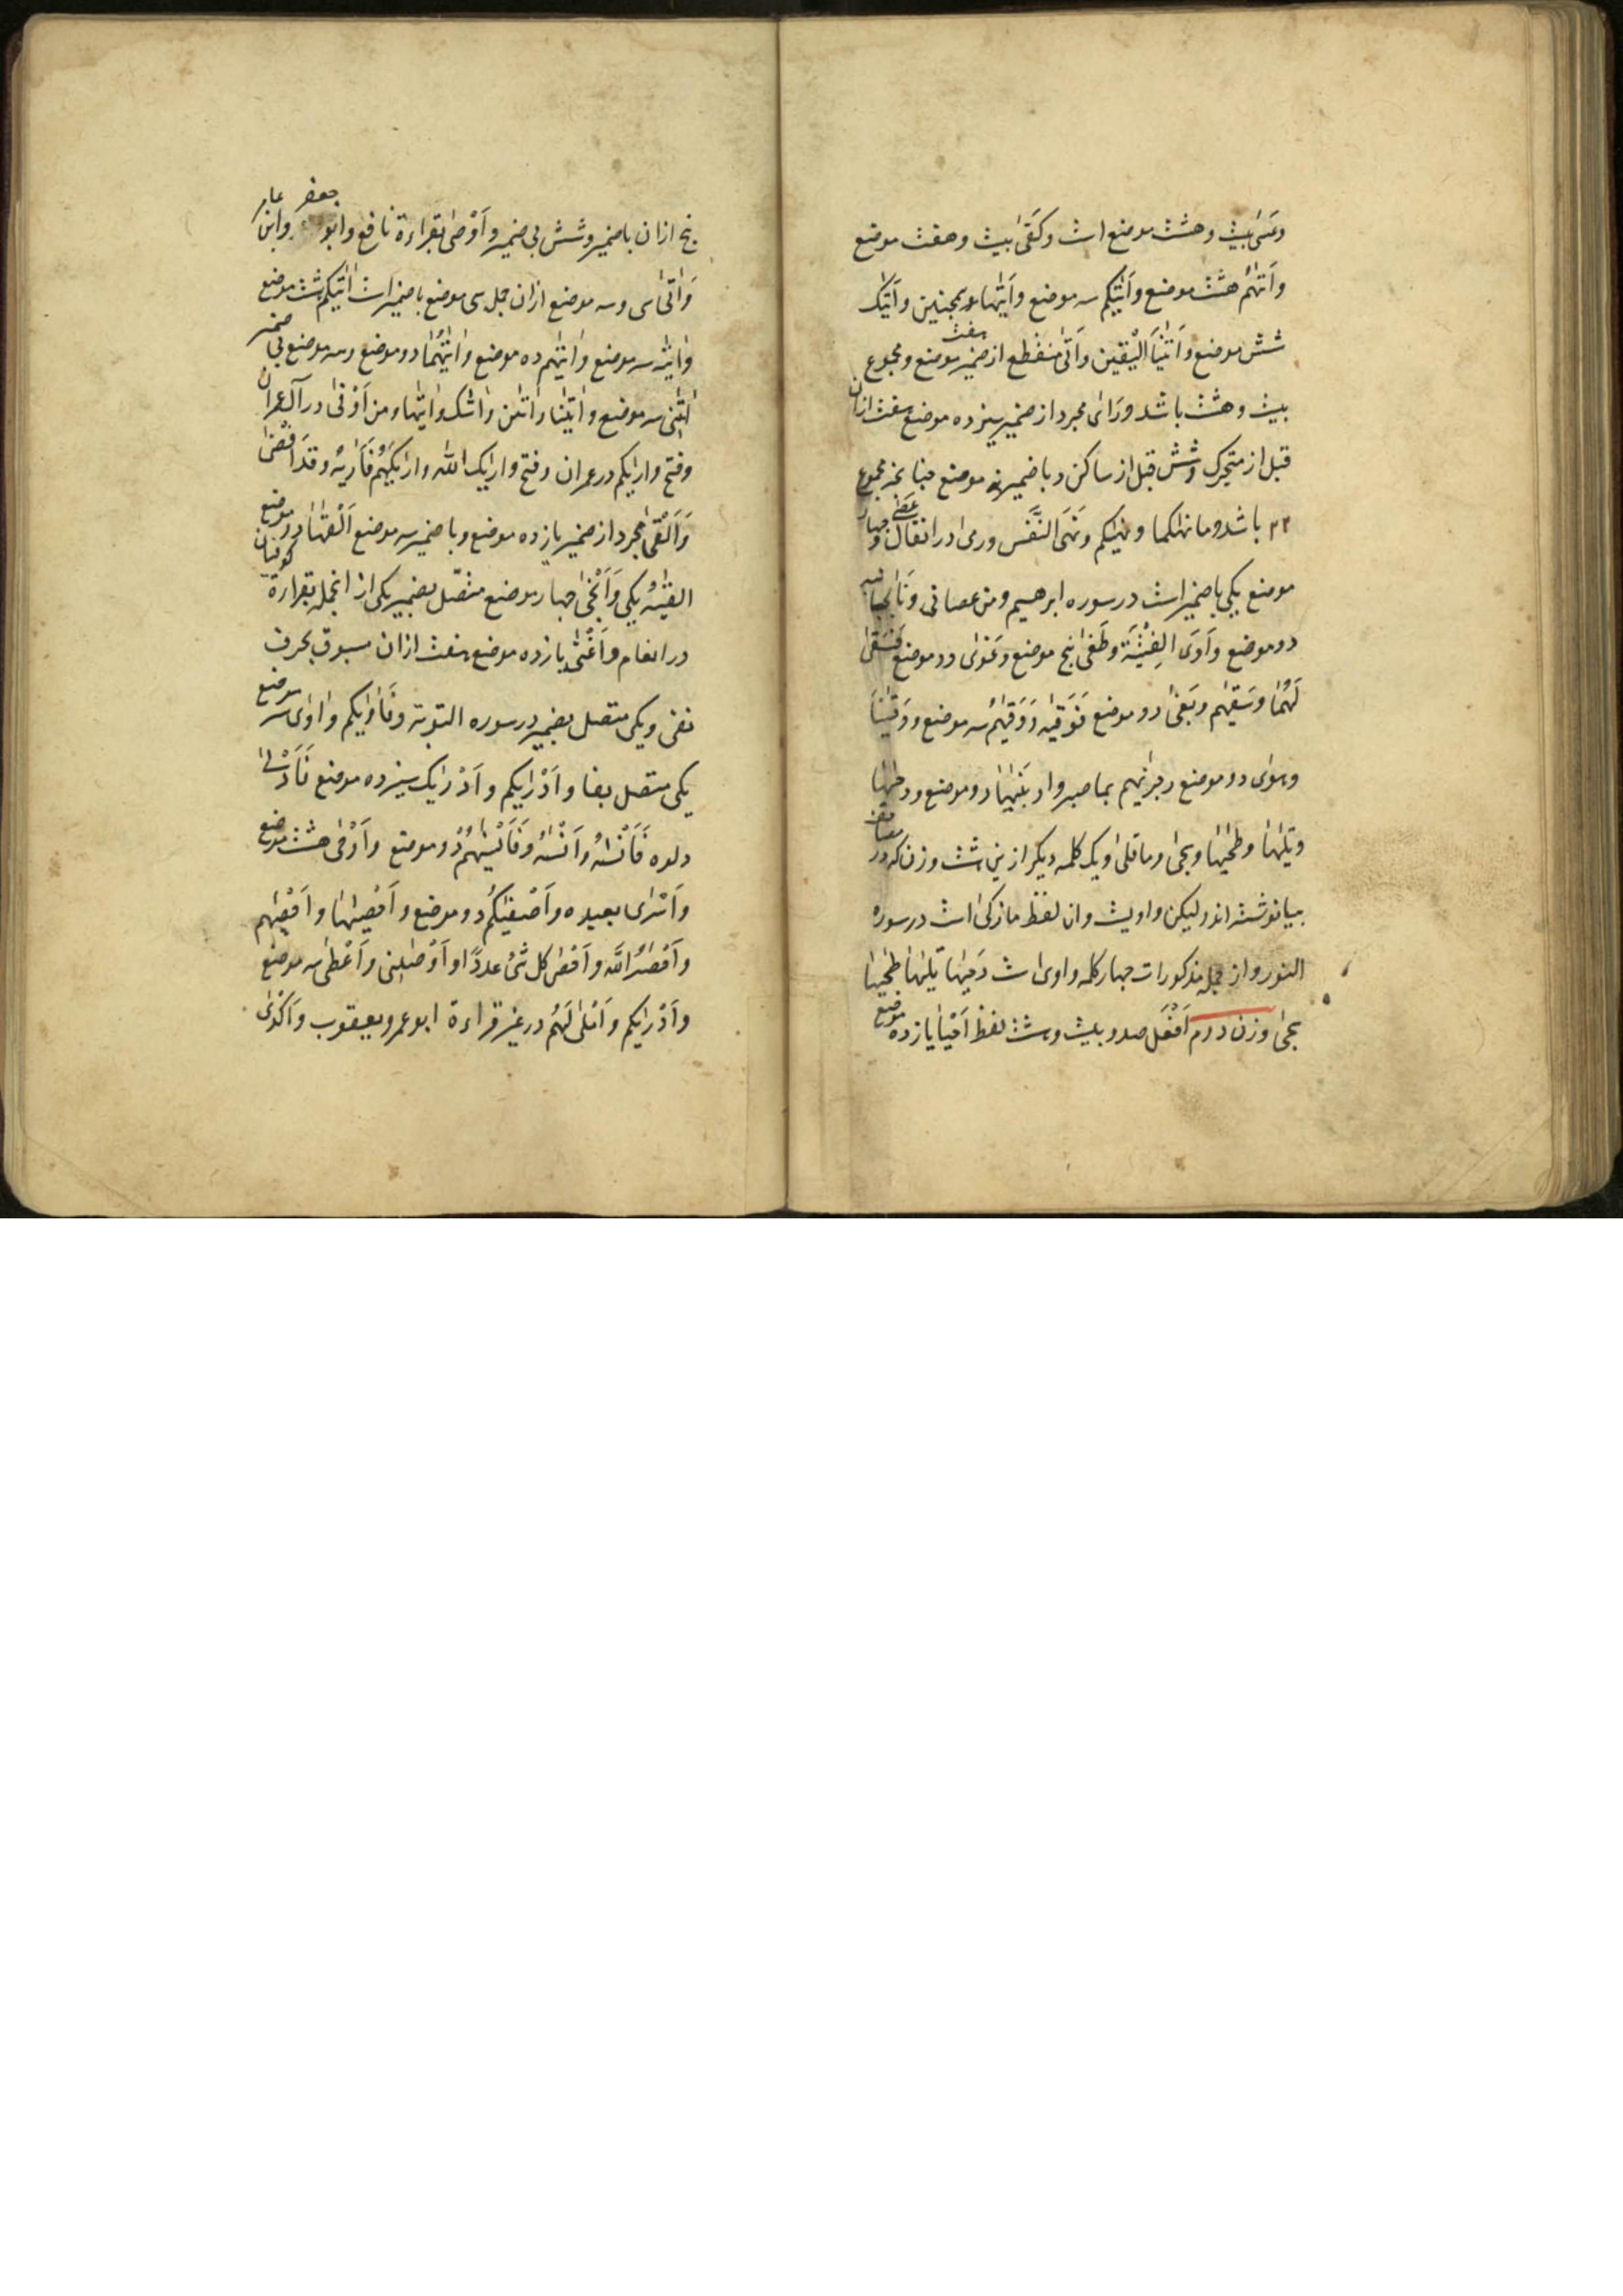 وعسی بیست وهشت موضع است وکفی بیست وهفت موضع
واتهم هشت موضع واتیکم سه موضع واتیها همچنین واتیک
شش موضع واتینا الیقین واتی منقطع از ضمیر هفت موضع ومجموع
بیست وهشت باشد ورای مجرد از ضمیر سیزده موضع هفت ازان
قبل از متحرک وشش قبل از ساکن وبا ضمیر نه موضع مجموع
۲۲ باشد وما نهیکما ونهیکم ونهی النفس ورمی در انفال وعصی چهار
موضع یکی با ضمیر است در سوره ابرهیم ومن عصانی ونابجانبه
دو موضع واوی الفتیة وطغی پنج موضع وغوی دو موضع فسقی
لهما وسقیهم وبغی دو موضع فوقیه ووقیهم سه موضع ووقینا
وهوی دو موضع وجزیهم بما صبروا وبنیها دو موضع ودحیها
وتلیها وطحیها وسجی وما قلی ویک کلمه دیگر ازین هشت وزن که در مصاحف
بیا نوشته اند ولیکن واویست وان لفظ ما زکی است در سوره
النور واز جمله مذکورات چهار کلمه واوی است دحیها تلیها طحیها
سجی وزن دوم افعل صد وبیست وهشت لفظ احیا یازده موضع
پنج ازان با ضمیر وشش بی ضمیر واوصی بقراءة نافع وابو جعفر وابن عامر
واتی سی وسه موضع ازان جمله سی موضع با ضمیر است اتیکم هشت موضع
واتیه سه موضع واتیهم ده موضع واتیهما دو موضع وسه موضع بی ضمیر
اتینی سه موضع واتینا واتین واتیک واتیها ومن اوفی در آل عمران
وفتح واریکم در عمران وفتح واریک الله واریکهم فاریه وقد افضی
والقی مجرد از ضمیر یازده موضع وبا ضمیر سه موضع القیها دو موضع
القیه یکی وانجی چهار موضع متصل بضمیر یکی از انجمله بقراءة کوفیان
در انعام واغنی یازده موضع هفت ازان مسبوق بحرف
نفی ویکی متصل بضمیر در سوره التوبة وفاویکم واوی سه موضع
یکی متصل بفا وادریکم وادریک سیزده موضع فادلی
دلوه فانسیه وانسیه وفانسیهم دو موضع واوفی هشت موضع
واسری بعبده واصفیکم دو موضع واحصیها واحصیهم
واحصیه الله واحصی کل شئ عددا واوصانی واعطی سه موضع
وادریکم واملی لهم در غیر قراءة ابو عمرو ویعقوب واکدی